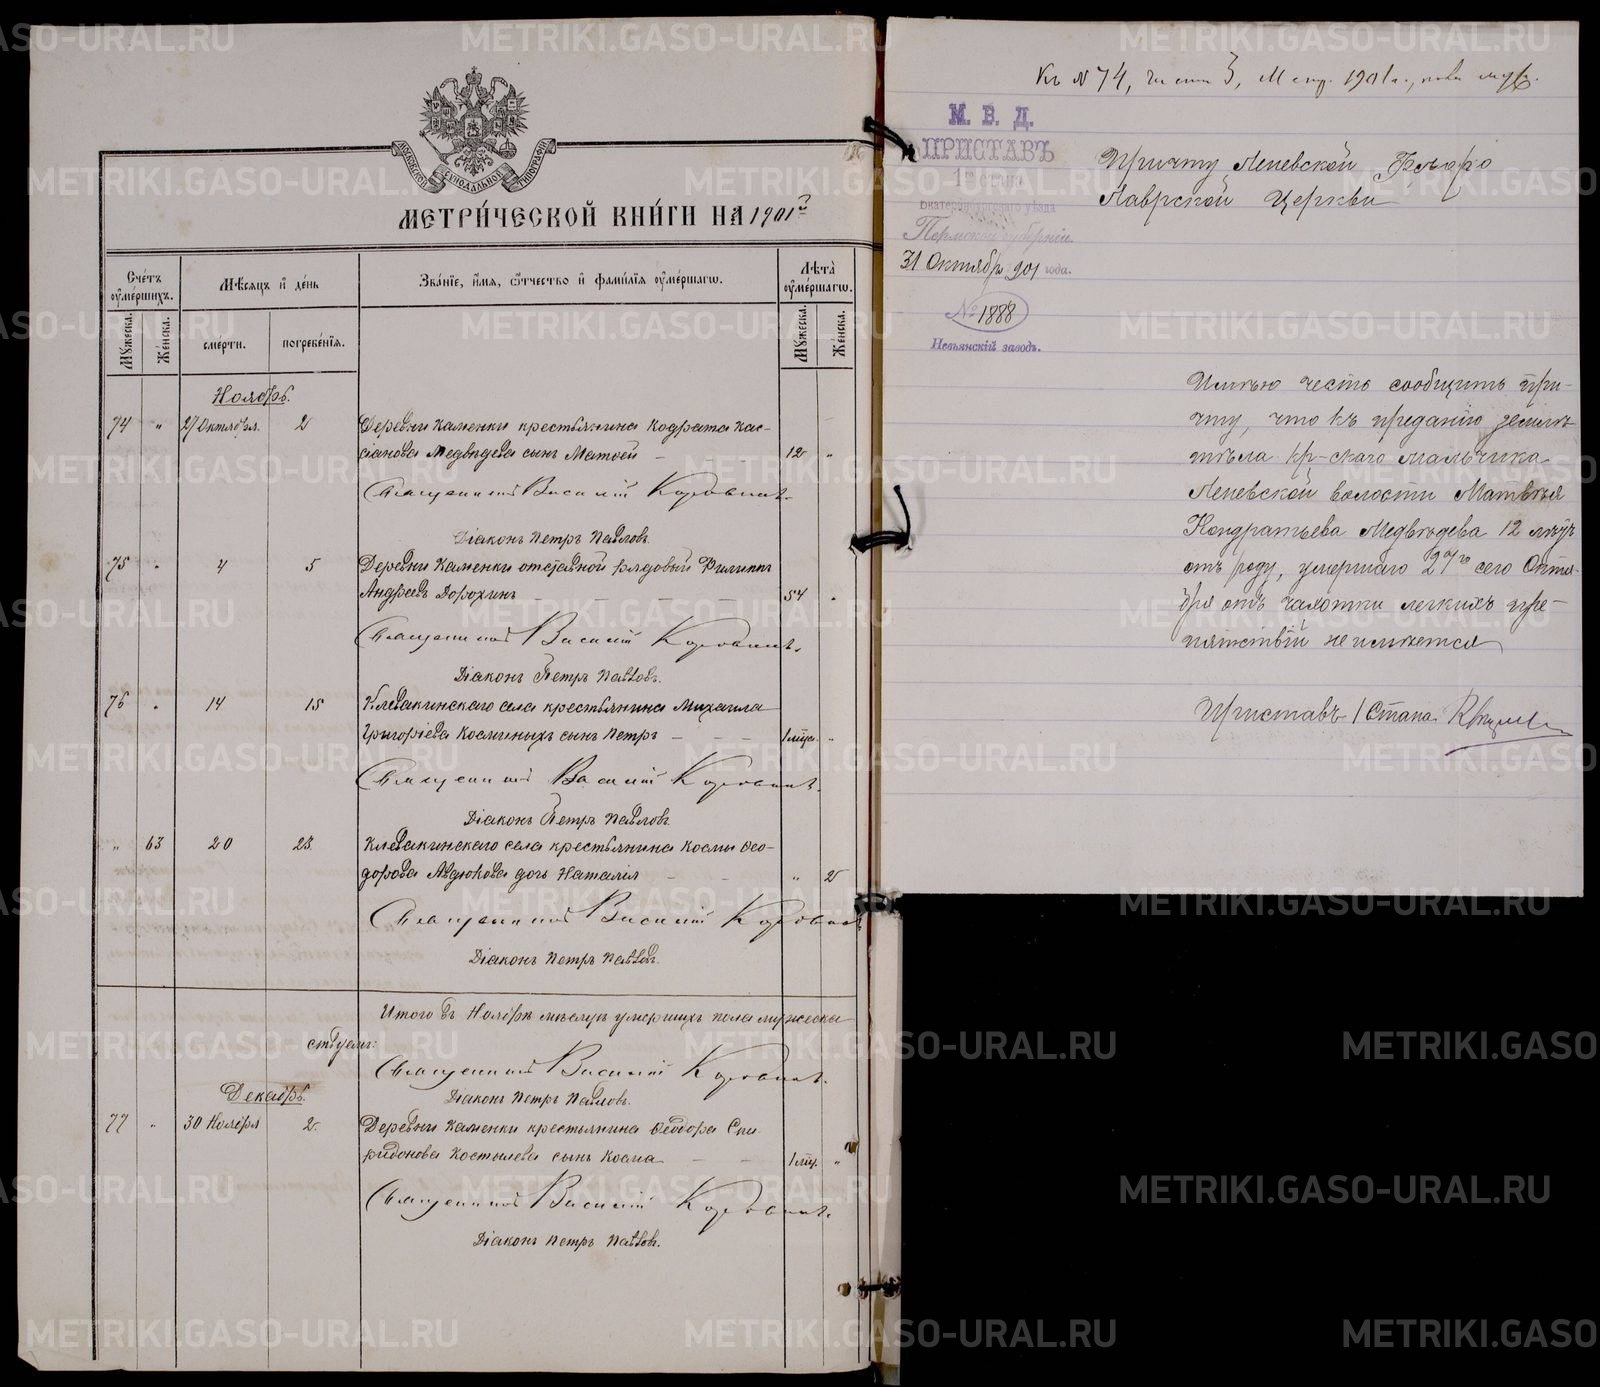 МЕТРИЧЕСКОЙ КНИГИ НА 1901 г.
Счетъ умершихъ.
Мѣсяцъ и день
Званіе, имя, отчество и фамилія умершаго.
Лѣта умершаго.
Мужеска.
Женска.
смерти.
погребенія.
Мужеска.
Женска.
Ноябрь.
74 " 27 Октября. 2 Деревни Каменки крестьянина Кодрата Кас-
сіанова Медвѣдева сынъ Матѳей — 12 "
Священникъ Василій Коровинъ.
Діаконъ Петръ Павловъ.
75 " 4 5 Деревни Каменки отставной рядовый Филиппъ
Андреевъ Дорохинъ — — — — 54 "
Священникъ Василій Коровинъ.
Діаконъ Петръ Павловъ.
76 " 14 15 Клевакинскаго села крестьянина Михаила
Григоріева Косминыхъ сынъ Петръ — — — 1 мѣс. "
Священникъ Василій Коровинъ.
Діаконъ Петръ Павловъ.
" 63 20 23. Клевакинскаго села крестьянина Космы Ѳео-
дорова Авдюкова дочь Наталія — — " 2
Священникъ Василій Коровинъ.
Діаконъ Петръ Павловъ.
Итого въ Ноябрѣ мѣсяцѣ умершихъ пола мужеска
Священникъ Василій Коровинъ.
Діаконъ Петръ Павловъ.
Декабрь.
77 " 30 Ноября 2. Деревни Каменки крестьянина Ѳеодора Спи-
ридонова Костылева сынъ Косма — — 1 мѣс. "
Священникъ Василій Коровинъ.
Діаконъ Петръ Павловъ.
Къ № 74, части 3, 1901 г.,
М. В. Д.
ПРИСТАВЪ
1го стана
Екатеринбургскаго уѣзда
Пермской губерніи.
31 Октября 1901 года.
№ 1888
Невьянскій заводъ.
Причту Леневской
Лаврской Церкви
Имѣю честь сообщить при-
чту, что къ преданію землѣ
тѣла кр-скаго мальчика
Леневской волости Матвѣя
Кондратьева Медвѣдева 12 лѣтъ
отъ роду, умершаго 27го сего Октя-
бря отъ чахотки легкихъ пре-
пятствій не имѣется
Приставъ 1 Стана
METRIKI.GASO-URAL.RU